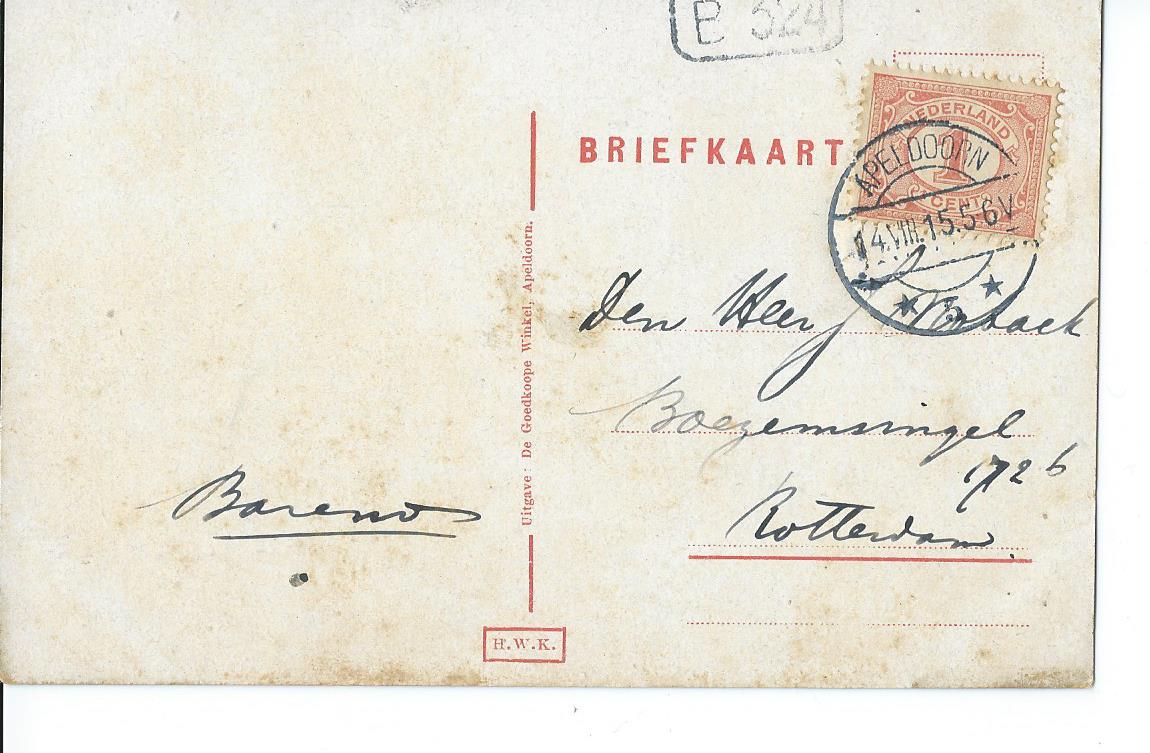 B 324
BRIEFKAART
NEDERLAND
1
CENT
APELDOORN
14.VIII.15.5-6V
5
Den Heer J
Boezemsingel
172 b
Rotterdam.
Barend
Uitgave: De Goedkoope Winkel, Apeldoorn.
H.W.K.